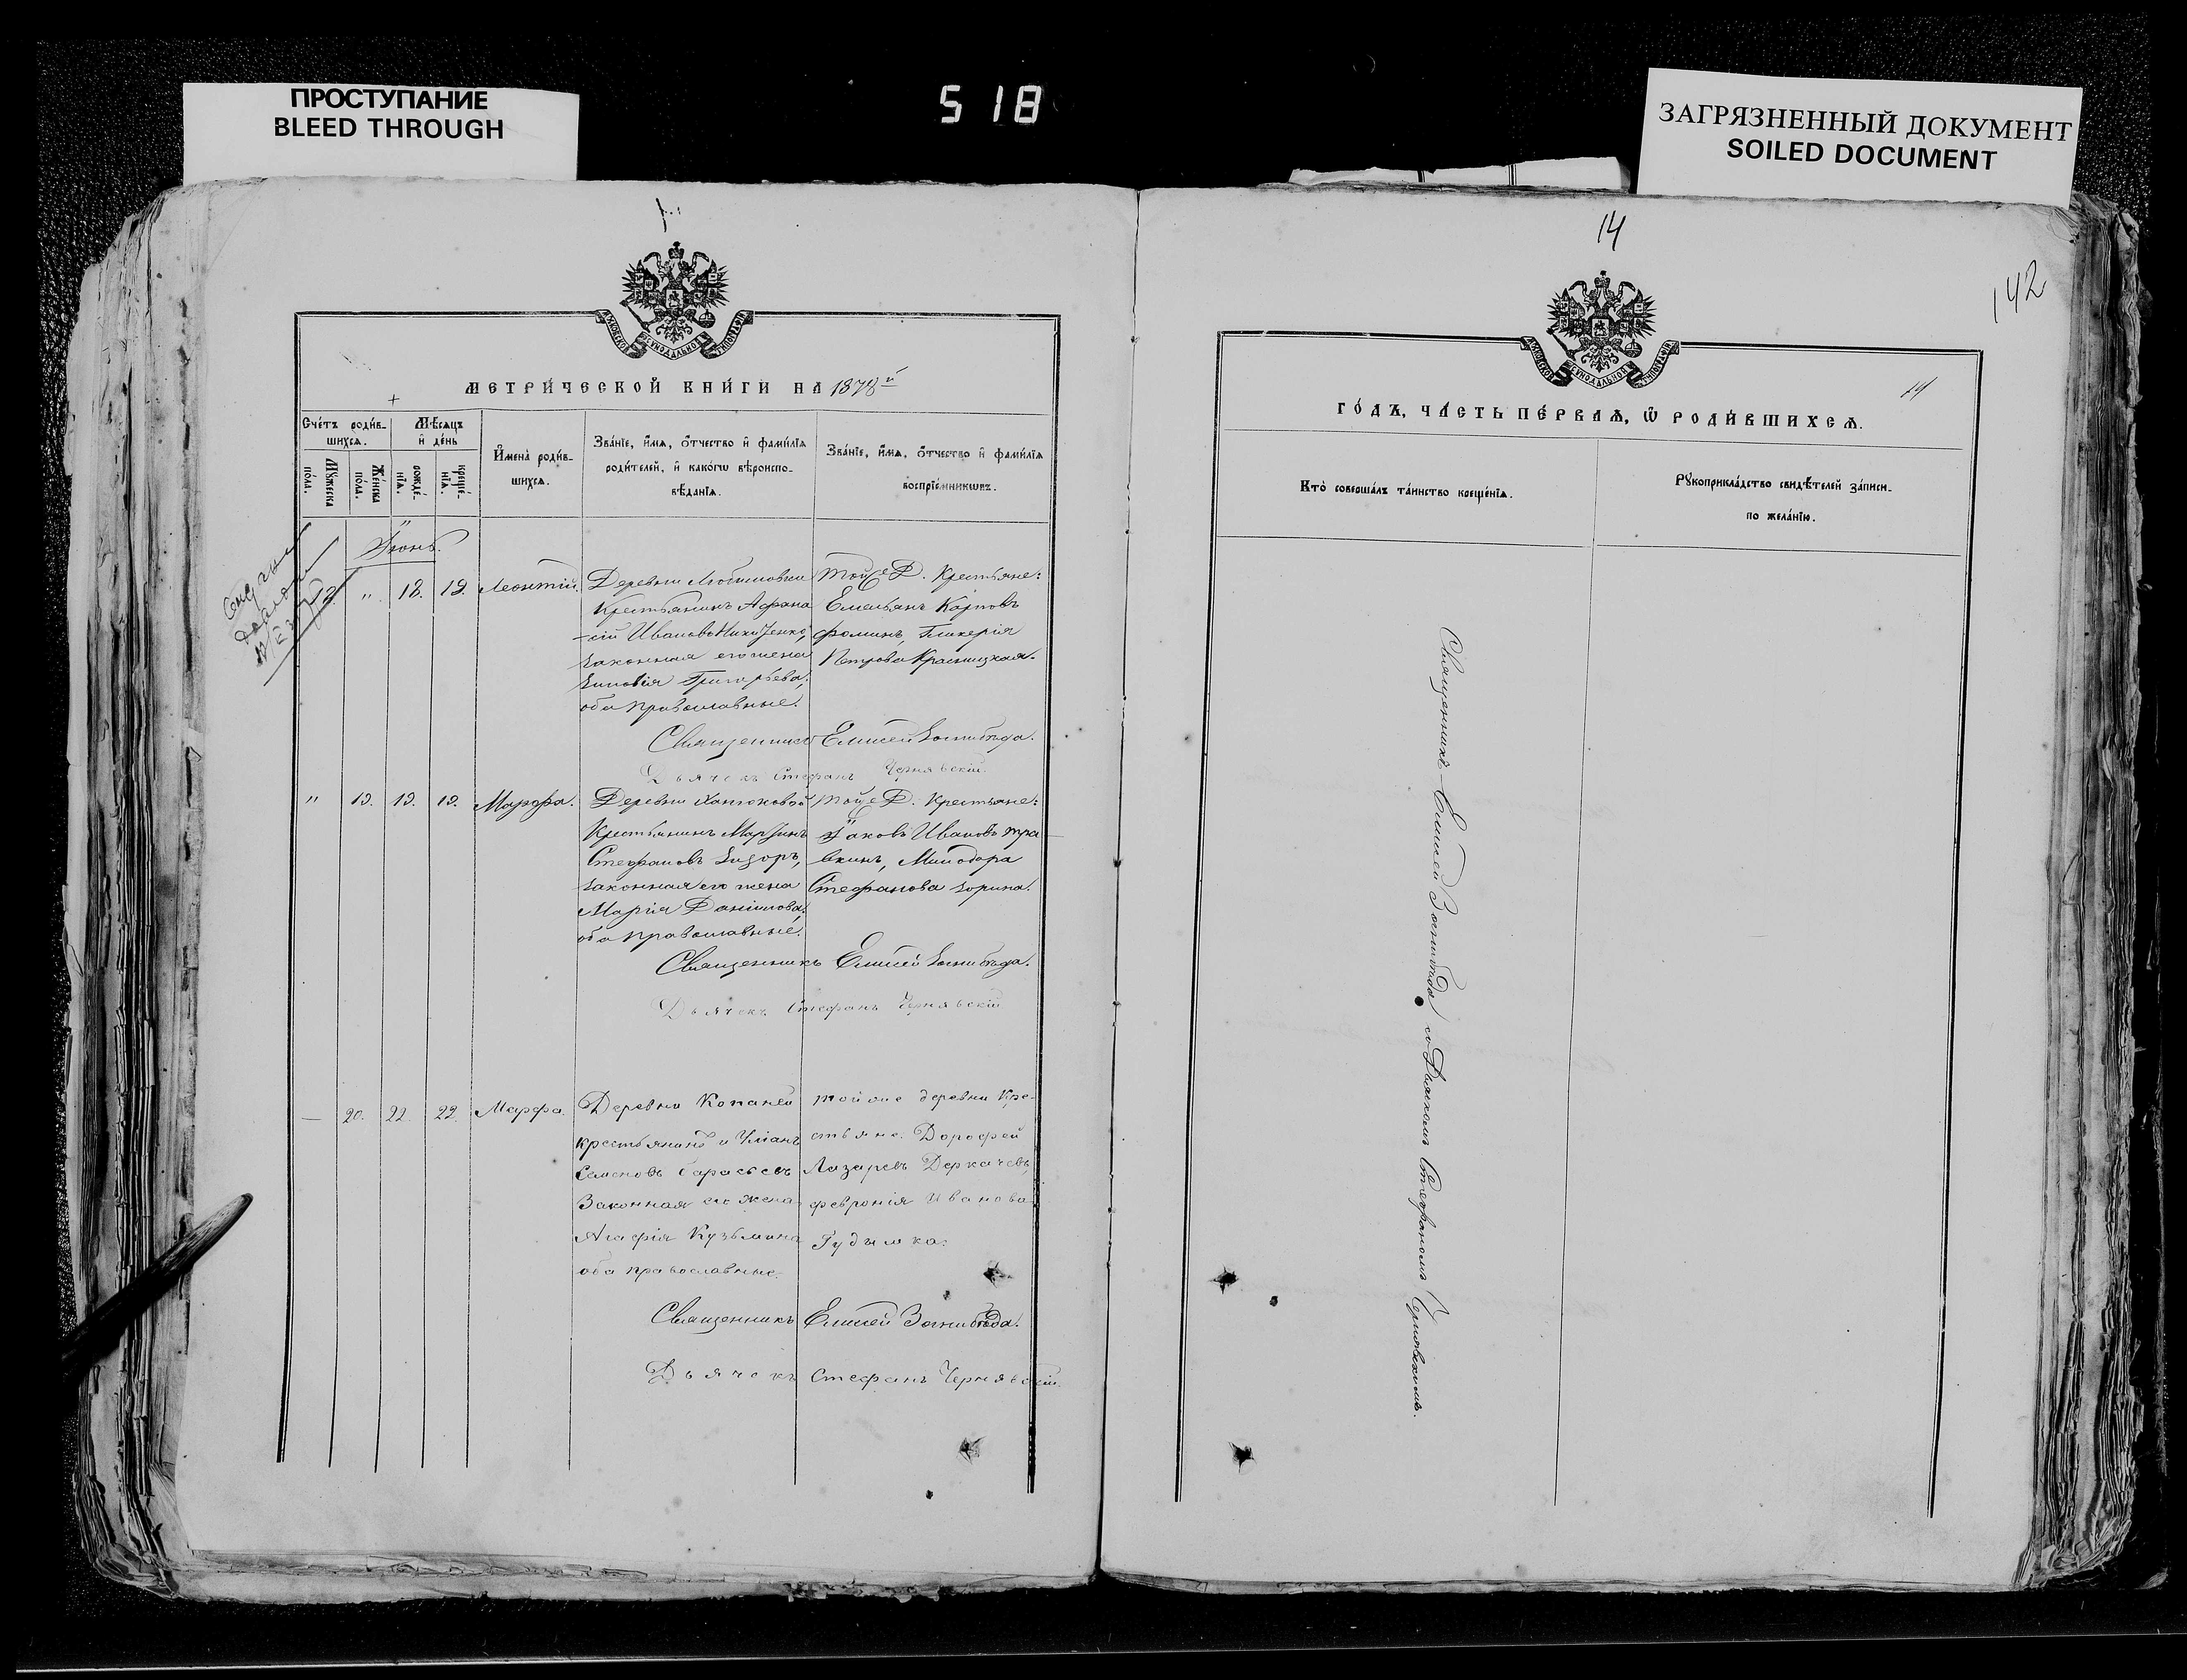 ПРОСТУПАНИЕ
BLEED THROUGH
518
ЗАГРЯЗНЕННЫЙ ДОКУМЕНТ
SOILED DOCUMENT
МЕТРИ́ЧЕСКОЙ КНИ́ГИ НА 1878й
Сче́тъ роди́в-
шихсѧ.
Мꙋ́жеска
по́ла.
Же́нска
по́ла.
Мѣ́сѧцъ
и҆ де́нь
рожде́-
нїѧ.
креще́-
нїѧ.
И҆мена̀ роди́в-
шихсѧ.
Зва́нїе, и҆́мѧ, ѻ҆́тчество и҆ фами́лїѧ
роди́телей, и҆ како́гѡ вѣроиспо-
вѣ́данїѧ.
Зва́нїе, и҆́мѧ, ѻ҆́тчество и҆ фами́лїѧ
воспрїе́мникѡвъ.
Іюнь.
" 18. 19. Леонтій.
Деревни
Крестьянинъ Афана
-сій Ивановъ
законная его жена
Зиновія Григорьева,
оба православные.
той же Д. Крестьяне:
Емельянъ Карповъ
Фоминъ, Гликерія
Петрова Красницкая.
Священникъ Елисей Загнибѣда.
Дьячекъ Стефанъ Чернявскій.
" 19. 19. 19. Марфа.
Деревни
Крестьянинъ Мартинъ
Стефановъ
законная его жена
Марія Даніилова,
оба православные.
той же Д. Крестьяне:
Іаковъ Ивановъ Тра
вкинъ, Минодора
Стефанова Зорина.
Священникъ Елисей Загнибѣда.
Дьячекъ Стефанъ Чернявскій
— 20. 22. 22. Марфа.
Деревни Копаней
крестьянинъ
Семеновъ
Законная его жена
Агафія Кузьмина
оба православные.
той же деревни Кре-
стьяне: Дорофей
Лазаревъ Деркачевъ,
Февронія Иванова
Гудымка.
Священникъ Елисей Загнибѣда.
Дьячекъ Стефанъ Чернявскій.
14
142
14
ГО́ДЪ, ЧА́СТЬ ПЕ́РВАѦ, Ѡ҆ РОДИ́ВШИХСѦ.
Кто̀ соверша́лъ та́инство креще́нїѧ.
Рꙋкоприкла́дство свидѣ́телей за́писи
по жела́нїю.
Священникъ Елисей Загнибѣда съ Дьячкомъ Стефаномъ Чернявскимъ.